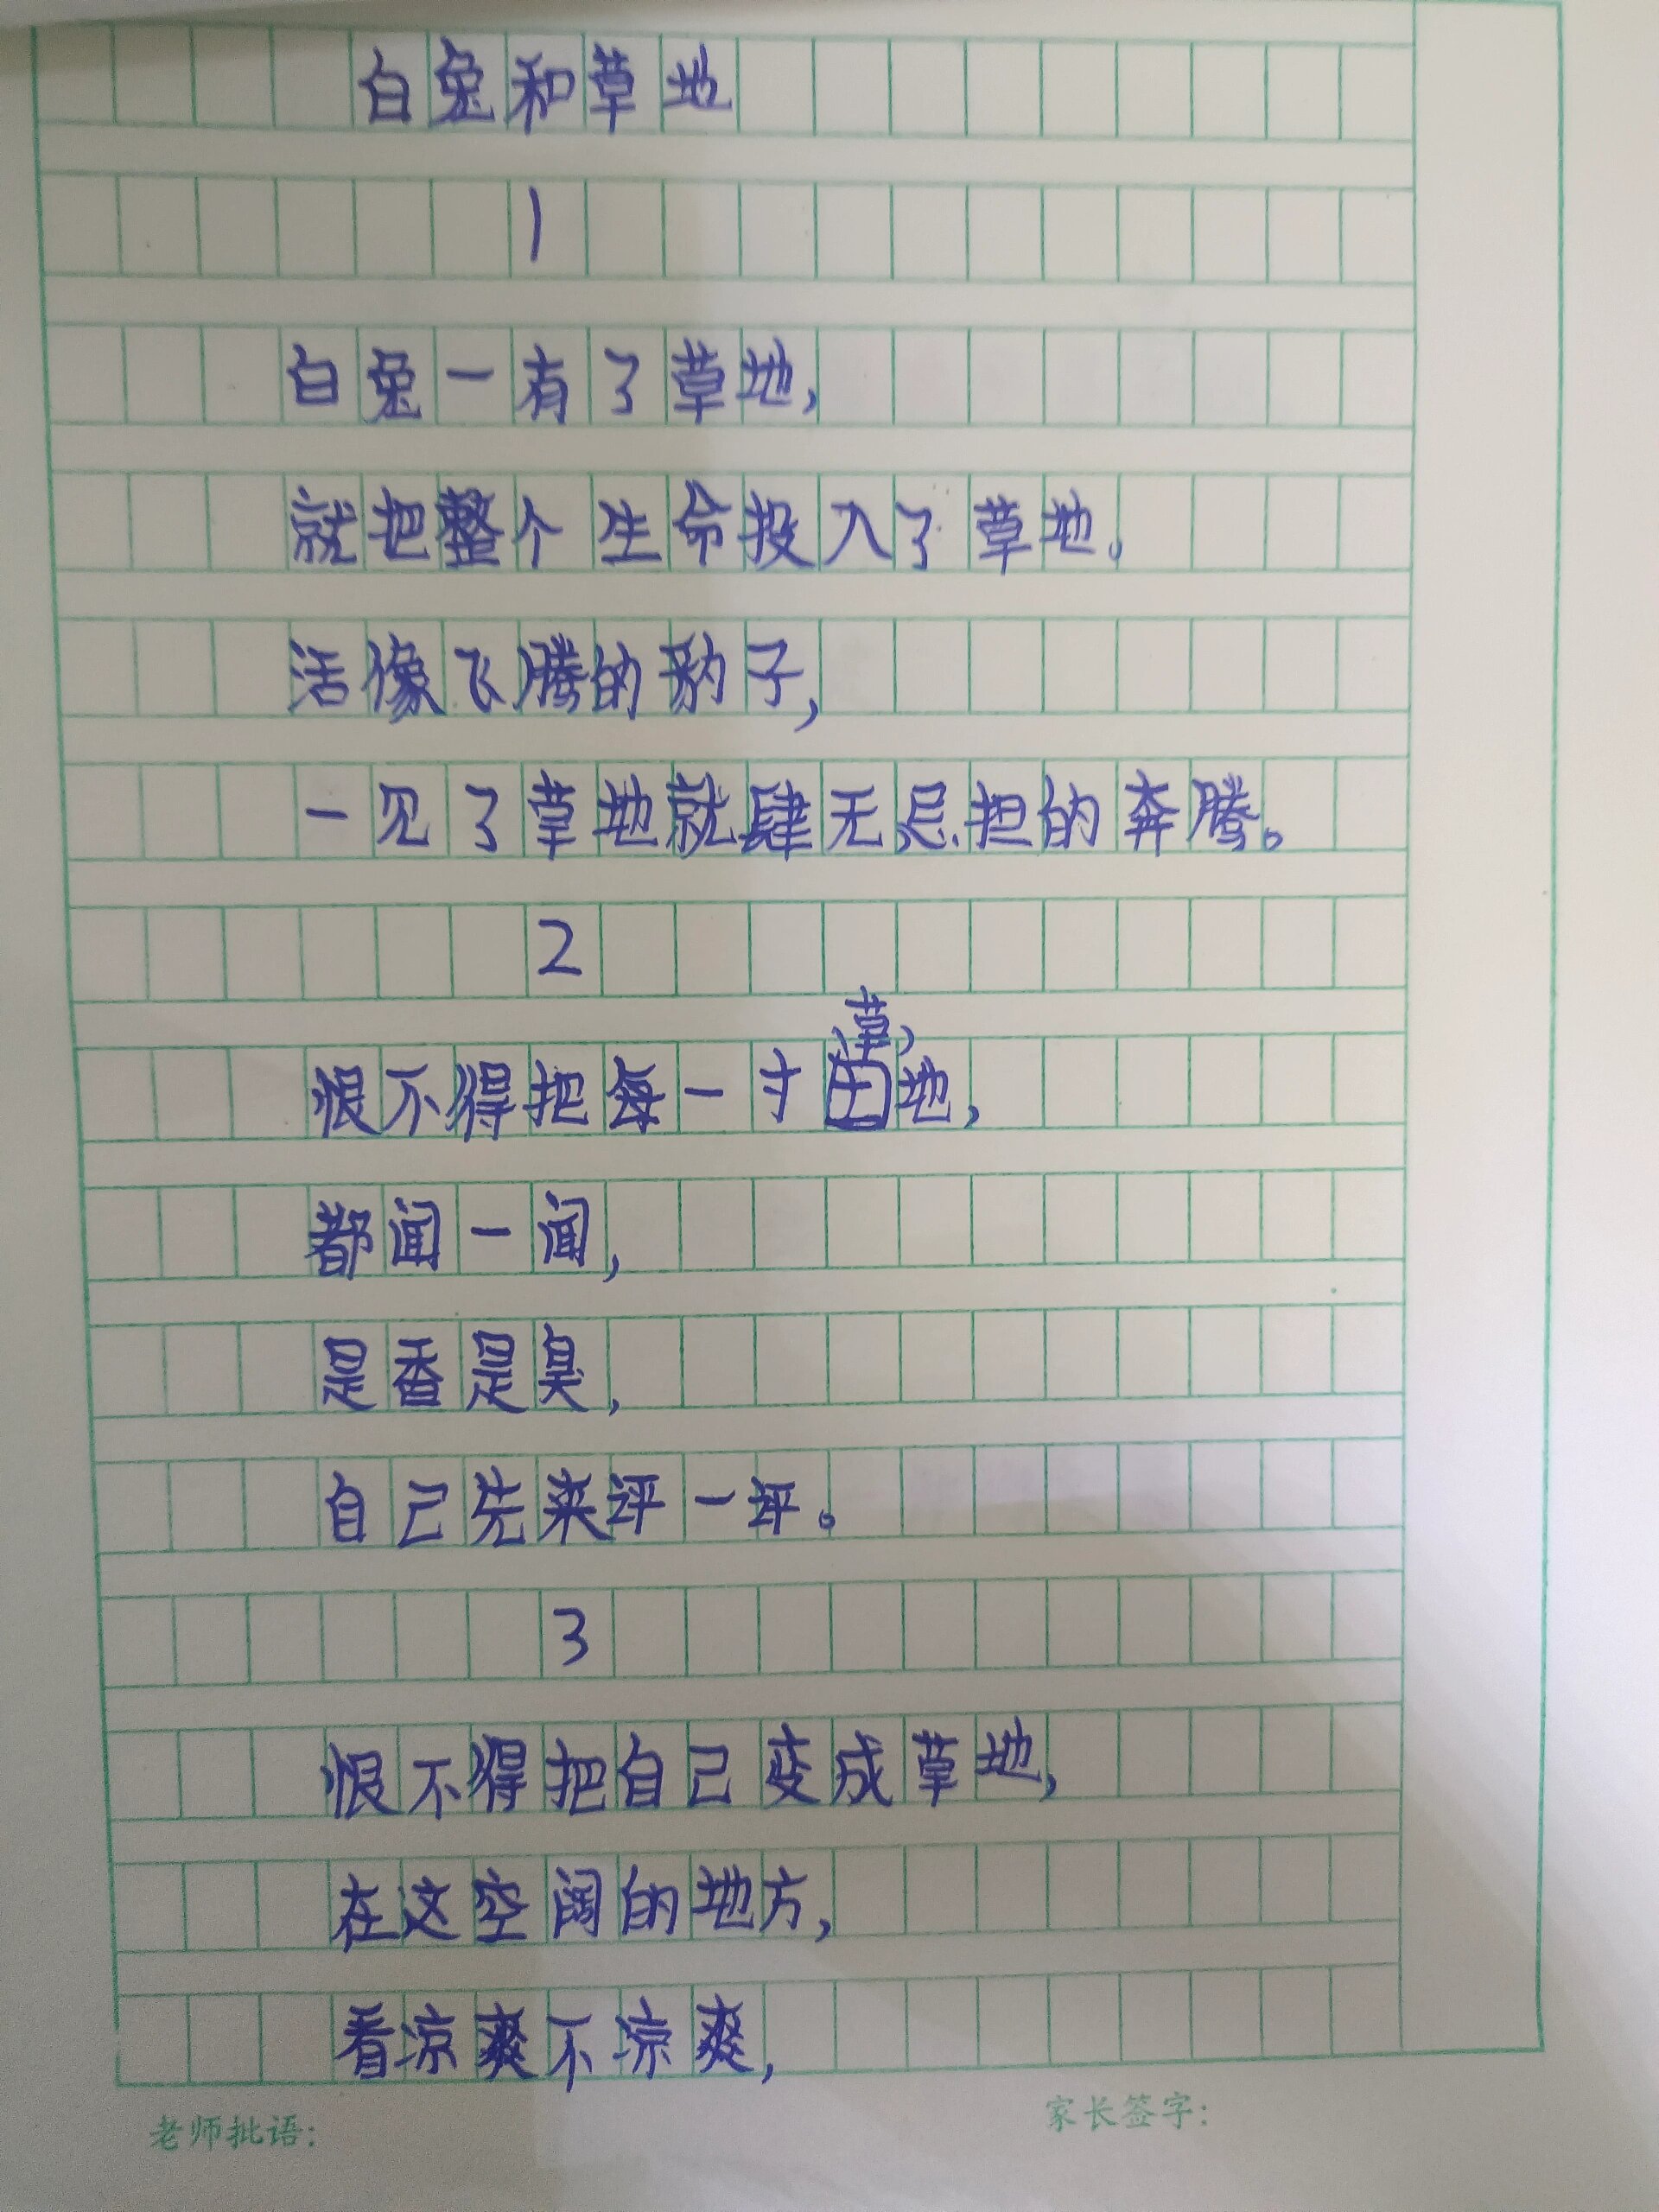 白兔和草地
1
白兔一有了草地，
就把整个生命投入了草地。
活像飞腾的豹子，
一见了草地就肆无忌担的奔腾。
2
恨不得把每一寸草地，
都闻一闻，
是香是臭，
自己先来评一评。
3
恨不得把自己变成草地，
在这空阔的地方，
看凉爽不凉爽，
老师批语： 家长签字：